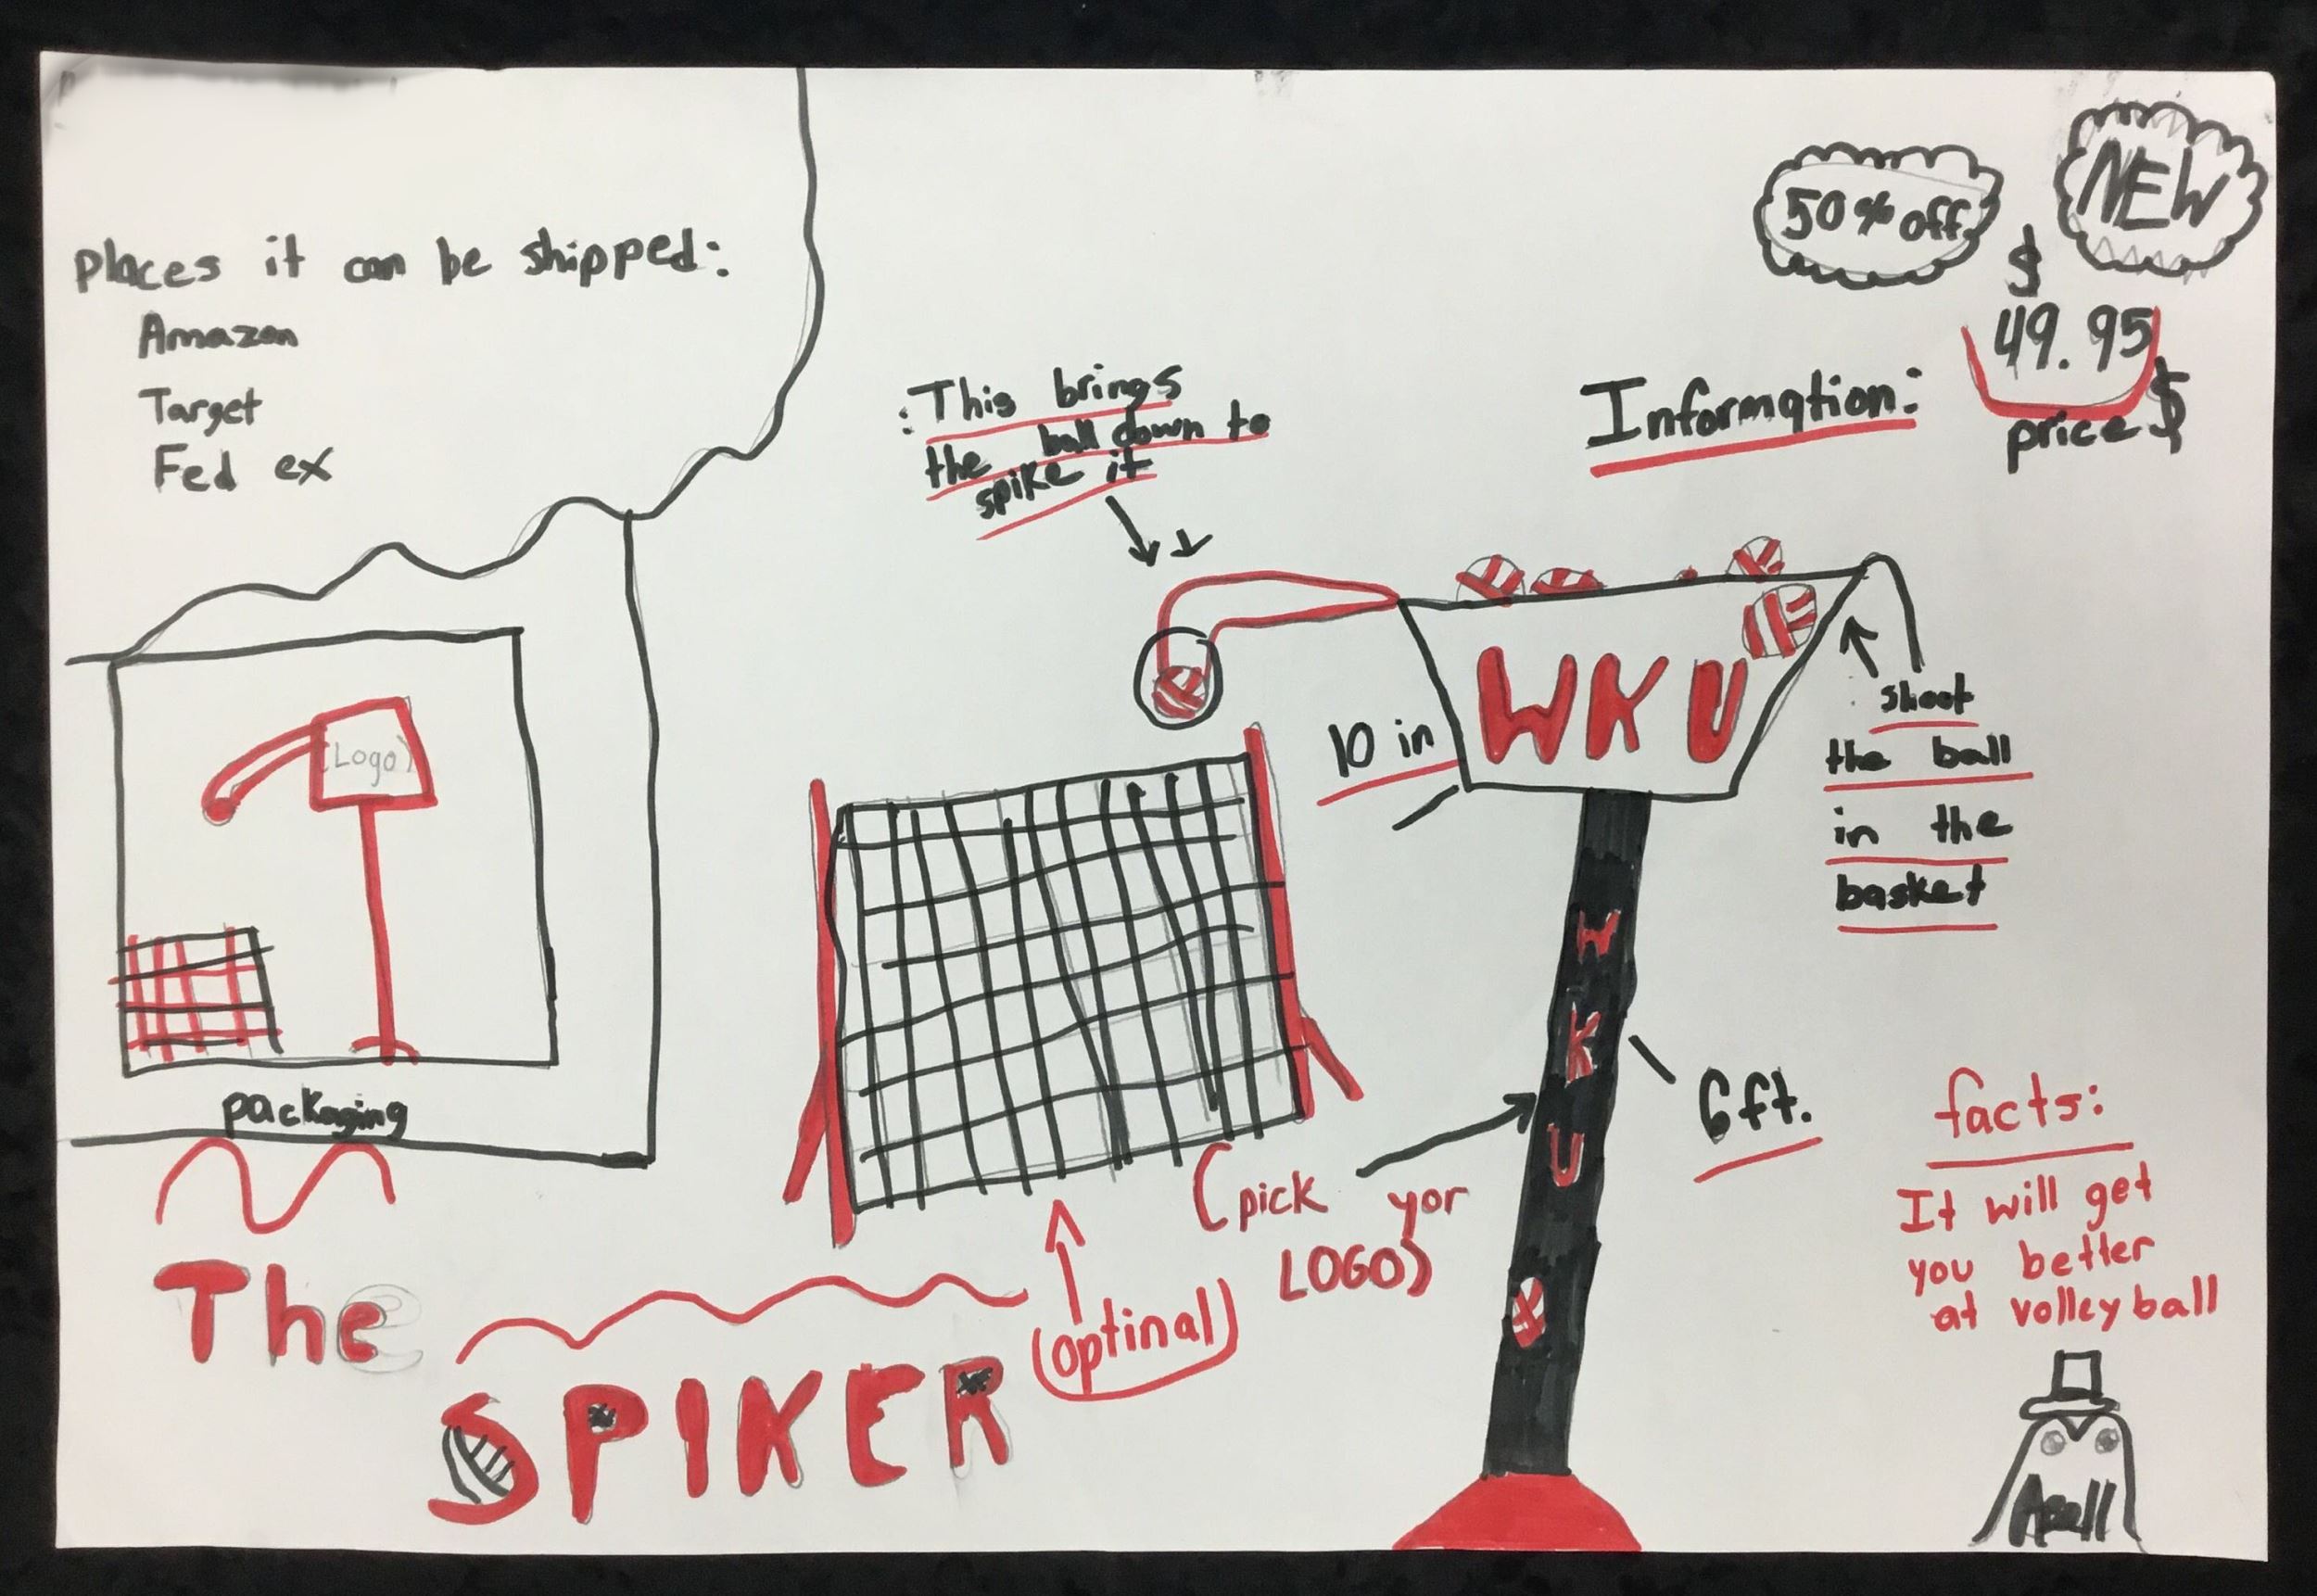 places it can be shipped:
Amazon
Target
Fed ex
(Logo)
packaging
The
SPIKER
:This brings
the ball down to
spike it
10 in
WKU
W
K
U
(pick yor
LOGO)
(optinal)
50% off
NEW
$
49.95
price $
Information:
shoot
the ball
in the
basket
6ft.
facts:
It will get
you better
at volleyball